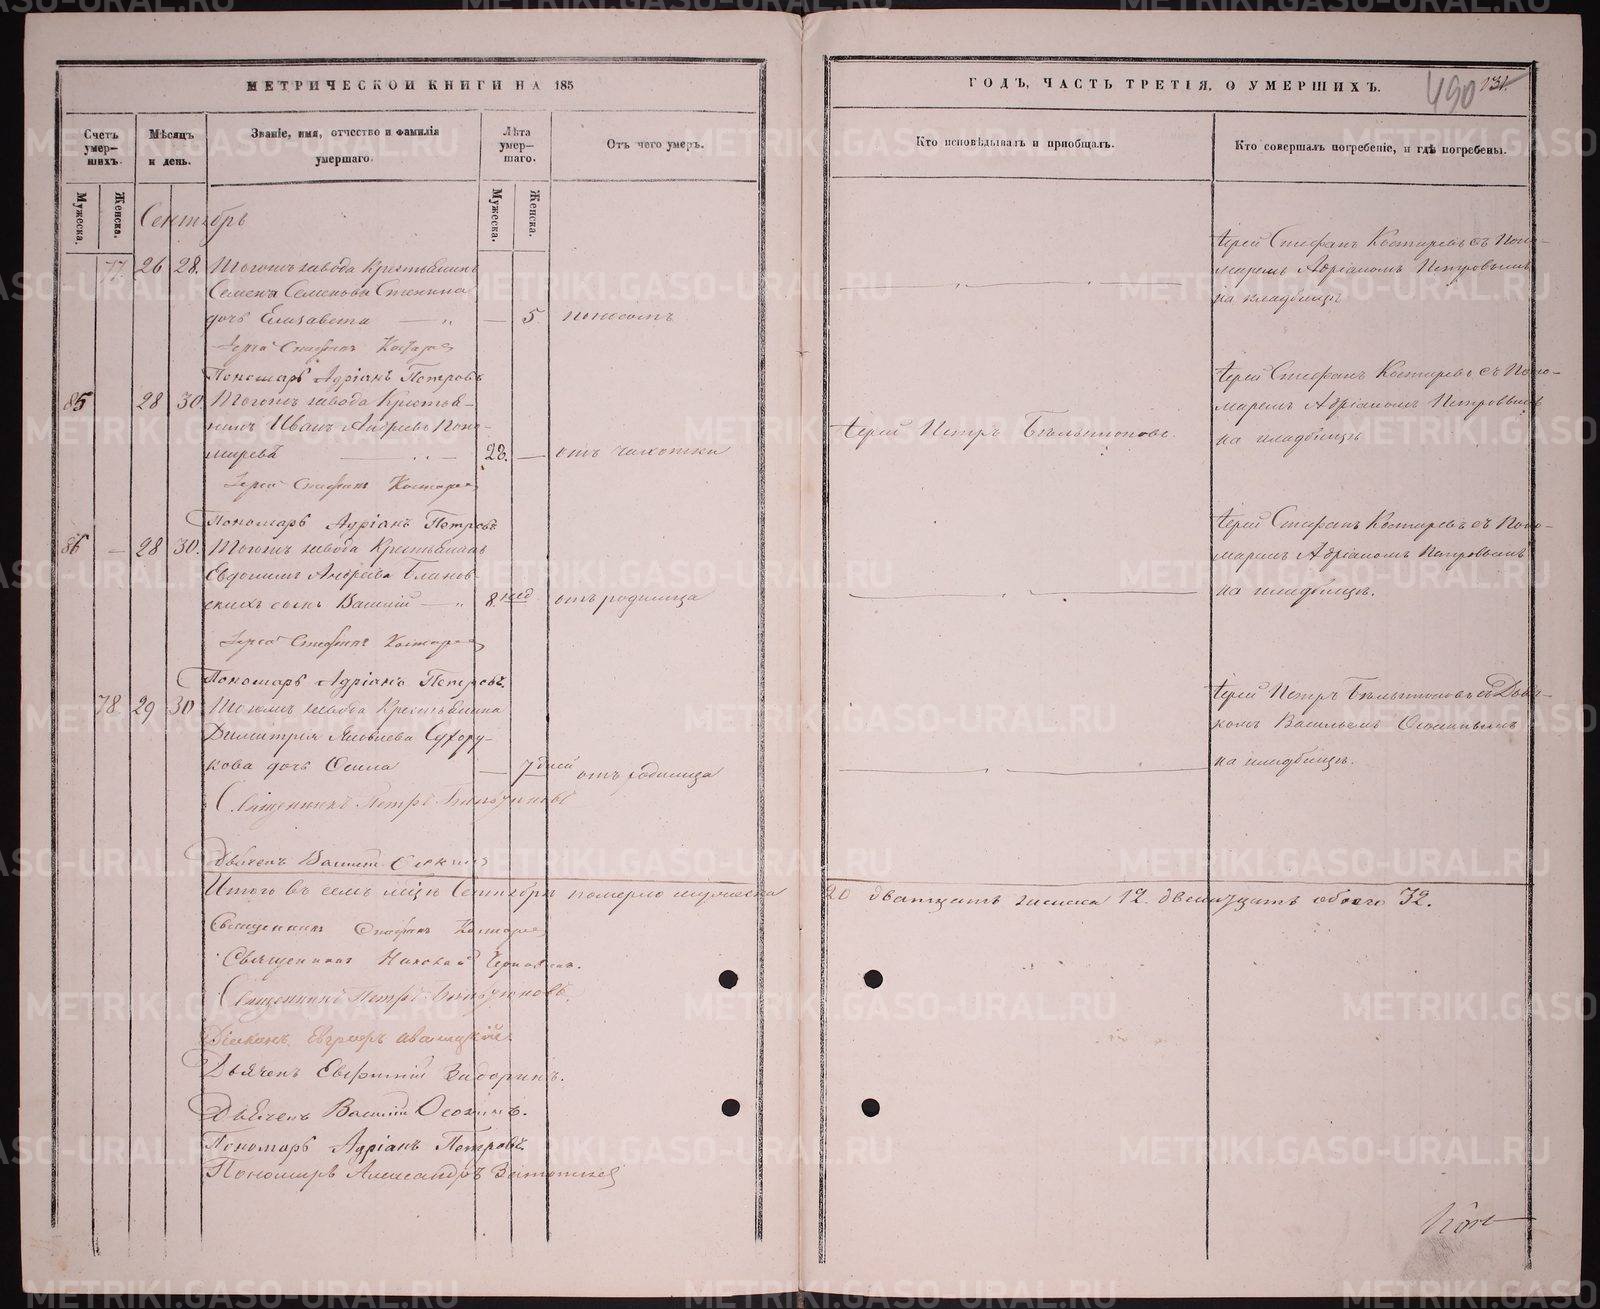 МЕТРИЧЕСКОЙ КНИГИ НА 185
Счетъ умер-шихъ.
Мѣсяцъ и день.
Званіе, имя, отчество и фамилія умершаго.
Лѣта умер-шаго.
Отъ чего умеръ.
Мужеска.
Женска.
Мужеска.
Женска.
Сентябрь
77. 26 28. Тогожъ завода Крестьянина
Семена Семенова Степина
дочь Елисавета — „ — 5 поносомъ
Іерей Стефанъ Костарев
Пономарь Адріанъ Петровъ
85 28 30. Тогожъ завода Крестья-
нинъ Иванъ Андреевъ Поно-
маревъ 23. — отъ чахотки
Іерей Стефанъ Костарев
Пономарь Адріанъ Петровъ
86 — 28 30. Тогожъ завода Крестьянина
Евдокима Андреева
скихъ сынъ Василій — „ 8. нед отъ родимца
Іерей Стефанъ Костарев
Пономарь Адріанъ Петровъ.
78 29 30 Тогожъ завода Крестьянина
Димитрія Яковлева Сухору-
кова дочь — 7 дней отъ родимца
Священникъ Петръ
Дьячекъ Василій Осокинъ
Итого въ семъ мцѣ Сентябрѣ померло мужеска
Священникъ Стефанъ Костарев
Священникъ Николай
Священникъ Петръ
Діаконъ
Дьячекъ Евфимій
Дьячекъ Василій Осокинъ.
Пономарь Адріанъ Петровъ.
Пономарь Александръ
ГОДЪ, ЧАСТЬ ТРЕТІЯ, О УМЕРШИХЪ.
490 131.
Кто исповѣдывалъ и пріобщалъ.
Кто совершалъ погребеніе, и гдѣ погребены.
Іерей Стефанъ Костаревъ съ Поно-
маремъ Адріаномъ Петровымъ
на кладбищѣ
Іерей Стефанъ Костаревъ съ Поно-
маремъ Адріаномъ Петровымъ
Іерей Петръ
на кладбищѣ
Іерей Стефанъ Костаревъ съ Поно-
маремъ Адріаномъ Петровымъ
на кладбищѣ.
Іерей Петръ съ Дьяч-
комъ Васильемъ Осокинымъ
на кладбищѣ.
20 двадцать женска 12. двенадцать обоего 32.
METRIKI.GASO-URAL.RU